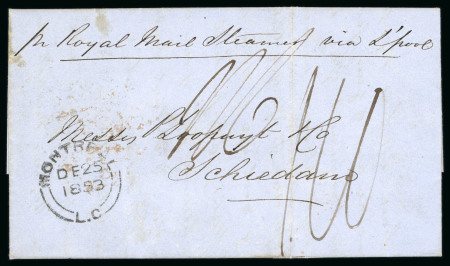 pr Royal Mail Steamer via L'pool
Messrs
Schiedam
MONTREAL
DE 25
1853
L.C